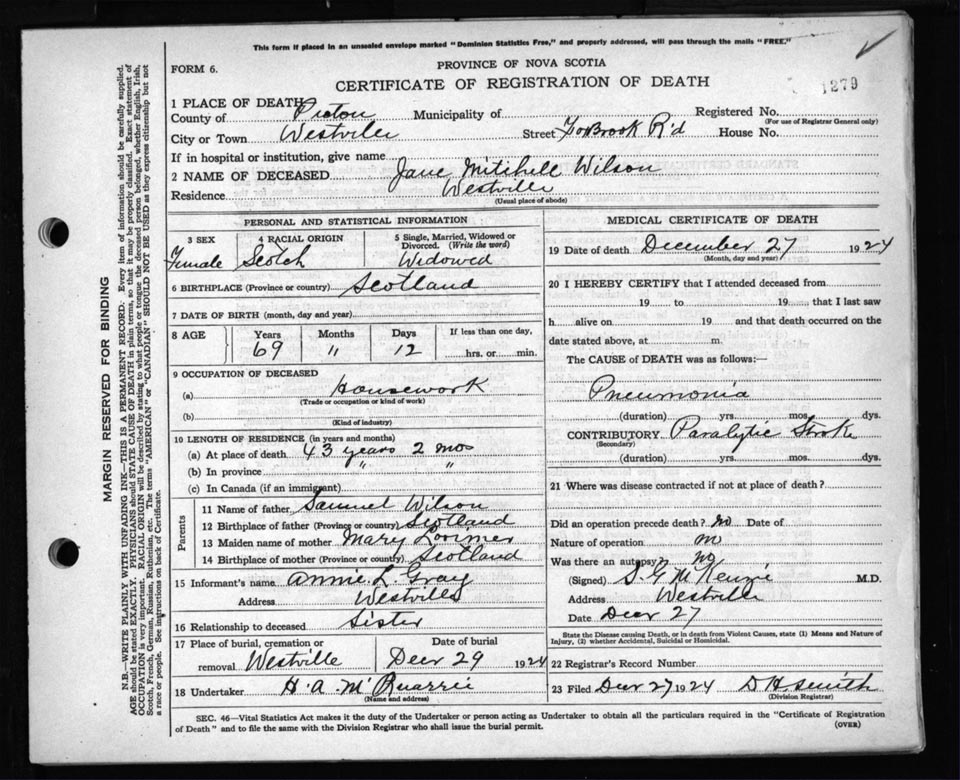 This form if placed in an unsealed envelope marked "Dominion Statistics Free," and properly addressed, will pass through the mails "FREE."
FORM 6.
PROVINCE OF NOVA SCOTIA
CERTIFICATE OF REGISTRATION OF DEATH
1279
1 PLACE OF DEATH
County of Pictou Municipality of Registered No.
(For use of Registrar General only)
City or Town Westville Street FoxBrook R'd House No.
If in hospital or institution, give name
2 NAME OF DECEASED Jane Mitchell Wilson
Residence Westville
(Usual place of abode)
PERSONAL AND STATISTICAL INFORMATION
3 SEX 4 RACIAL ORIGIN 5 Single, Married, Widowed or Divorced. (Write the word)
Female Scotch Widowed
6 BIRTHPLACE (Province or country) Scotland
7 DATE OF BIRTH (month, day and year)
8 AGE Years Months Days If less than one day,
69 " 12 hrs. or min.
9 OCCUPATION OF DECEASED
(a) Housework
(Trade or occupation or kind of work)
(b)
(Kind of industry)
10 LENGTH OF RESIDENCE (in years and months)
(a) At place of death 43 years 2 mos
(b) In province " "
(c) In Canada (if an immigrant)
Parents
11 Name of father Samuel Wilson
12 Birthplace of father (Province or country) Scotland
13 Maiden name of mother Mary Lorimer
14 Birthplace of mother (Province or country) Scotland
15 Informant's name Annie L. Gray
Address Westville
16 Relationship to deceased Sister
17 Place of burial, cremation or Date of burial
removal Westville Decr 29 1924
18 Undertaker H. A. McQuarrie
(Name and address)
MEDICAL CERTIFICATE OF DEATH
19 Date of death December 27 1924
(Month, day and year)
20 I HEREBY CERTIFY that I attended deceased from
19 to 19 that I last saw
h alive on 19 and that death occurred on the
date stated above, at m.
The CAUSE of DEATH was as follows:—
Pneumonia
(duration) yrs. mos. dys.
CONTRIBUTORY Paralytic Stroke
(Secondary)
(duration) yrs. mos. dys.
21 Where was disease contracted if not at place of death?
Did an operation precede death? no Date of
Nature of operation no
Was there an autopsy? no
(Signed) S. G. McKenzie M.D.
Address Westville
Date Decr 27
State the Disease causing Death, or in death from Violent Causes, state (1) Means and Nature of
Injury, (2) whether Accidental, Suicidal or Homicidal.
22 Registrar's Record Number
23 Filed Decr 27 1924 D H Smith
(Division Registrar)
SEC. 46—Vital Statistics Act makes it the duty of the Undertaker or person acting as Undertaker to obtain all the particulars required in the "Certificate of Registration
of Death" and to file the same with the Division Registrar who shall issue the burial permit.
(OVER)
MARGIN RESERVED FOR BINDING
N.B.—WRITE PLAINLY WITH UNFADING INK—THIS IS A PERMANENT RECORD. Every item of information should be carefully supplied.
AGE should be stated EXACTLY. PHYSICIANS should STATE CAUSE OF DEATH in plain terms, so that it may be properly classified. Exact statement of
OCCUPATION is very important. RACIAL ORIGIN will be described by stating to what people or tongue the deceased person belonged, whether English, Irish,
Scotch, French, German, Russian, Ruthenian, etc. The terms "AMERICAN" or "CANADIAN" SHOULD NOT BE USED as they express citizenship but not
a race or people. See instructions on back of Certificate.